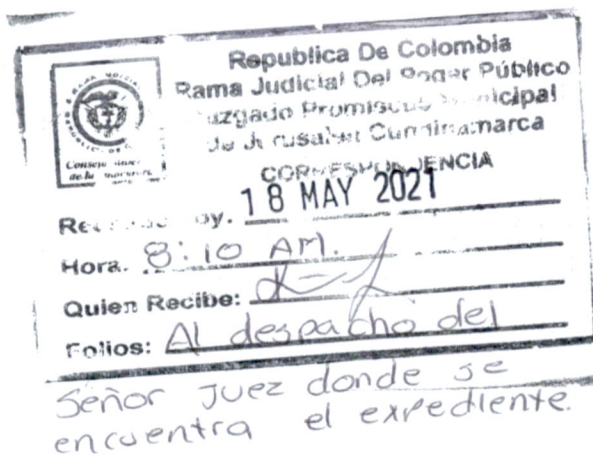 Republica De Colombia
Rama Judicial Del Poder Público
Juzgado Promiscuo Municipal
de Jerusalen Cundinamarca
CORRESPONDENCIA
Consejo
de la
18 MAY 2021
Hora. 8:10 AM.
Quien Recibe:
Folios: Al despacho del
Señor Juez donde se
encuentra el expediente.